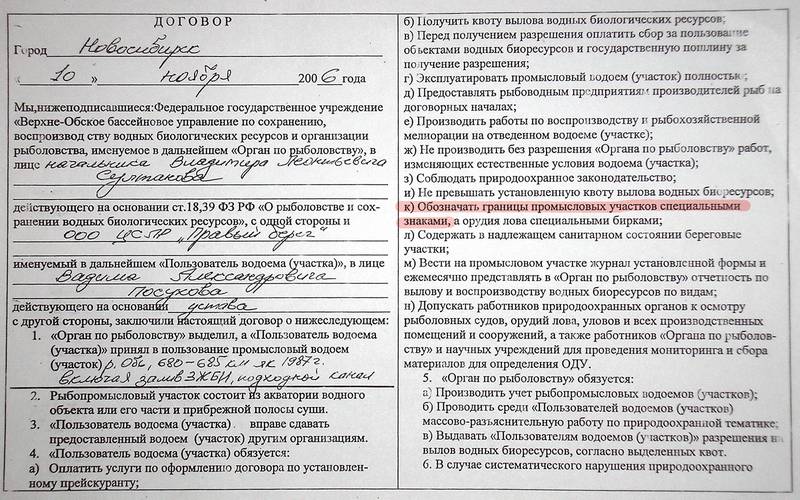 ДОГОВОР
Город Новосибирск
« 10 » ноября 2006 года
Мы,нижеподписавшиеся:Федеральное государственное учреждение
«Верхне-Обское бассейновое управление по сохранению,
воспроизвод ству водных биологических ресурсов и организации
рыболовства, именуемое в дальнейшем «Орган по рыболовству», в
лице начальника Владимира Леонтьевича
действующего на основании ст.18,39 ФЗ РФ «О рыболовстве и сох-
ранении водных биологических ресурсов», с одной стороны и
ООО ЦСПР "Правый берег"
именуемый в дальнейшем «Пользователь водоема (участка)», в лице
Вадима Александровича
Посухова
действующего на основании устава
с другой стороны, заключили настоящий договор о нижеследующем:
1. «Орган по рыболовству» выделил, а «Пользователь водоема
(участка)» принял в пользование промысловый водоем
(участок) р. Обь, 680-685 км як 1987г.
включая залив ЗЖБИ, подходной канал
2. Рыбопромысловый участок состоит из акватории водного
объекта или его части и прибрежной полосы суши.
3. «Пользователь водоема (участка) вправе сдавать
предоставленный водоем (участок) другим организациям.
4. «Пользователь водоема (участка) обязуется:
а) Оплатить услуги по оформлению договора по установлен-
ному прейскуранту;
б) Получить квоту вылова водных биологических ресурсов;
в) Перед получением разрешения оплатить сбор за пользование
объектами водных биоресурсов и государственную пошлину за
получение разрешения;
г) Эксплуатировать промысловый водоем (участок) полностью;
д) Предоставлять рыбоводным предприятиям производителей рыб на
договорных началах;
е) Производить работы по воспроизводству и рыбохозяйственной
мелиорации на отведенном водоеме (участке);
ж) Не производить без разрешения «Органа по рыболовству» работ,
изменяющих естественные условия водоема (участка);
з) Соблюдать природоохранное законодательство;
и) Не превышать установленную квоту вылова водных биоресурсов;
к) Обозначать границы промысловых участков специальными
знаками, а орудия лова специальными бирками;
л) Содержать в надлежащем санитарном состоянии береговые
участки;
м) Вести на промысловом участке журнал установленной формы и
ежемесячно представлять в «Орган по рыболовству» отчетность по
вылову и воспроизводству водных биоресурсов по видам;
н) Допускать работников природоохранных органов к осмотру
рыболовных судов, орудий лова, уловов и всех производственных
помещений и сооружений, а также работников «Органа по рыболов-
ству» и научных учреждений для проведения мониторинга и сбора
материалов для определения ОДУ.
5. «Орган по рыболовству» обязуется:
а) Производить учет рыбопромысловых водоемов (участков);
б) Проводить среди «Пользователей водоемов (участков)
массово-разъяснительную работу по природоохранной тематике;
в) Выдавать «Пользователям водоемов (участков)» разрешения на
вылов водных биоресурсов, согласно выделенных квот.
6. В случае систематического нарушения природоохранного